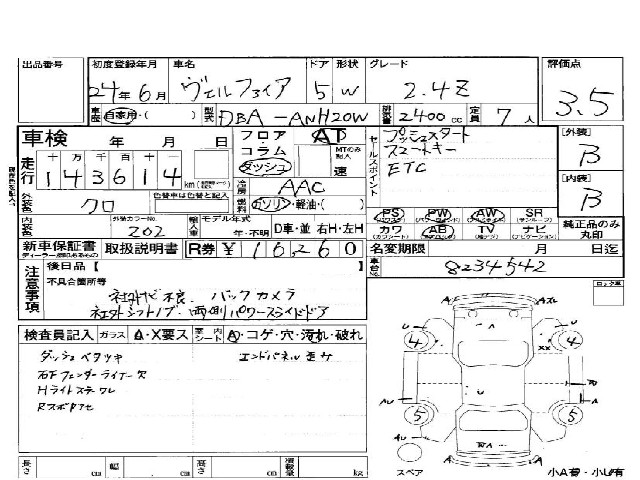 出品番号 初度登録年月 車名 ドア 形状 グレード 評価点
24年 6月 ヴェルファイア 5 W 2.4Z 3.5
車歴 自家用・( ) 型式 DBA-ANH20W 排気量 2400 cc 定員 7 人
車検 年 月 日 フロア AT セールスポイント プッシュスタート [外装]
コラム MTのみ記入 スマートキー B
走行 十万千百十一 ダッシュ 速 ETC [内装]
143614 km 冷房 AAC B
外装色 クロ 色替車は色替と記入 燃料 ガソリン・軽油・( )
PS PW AW SR
内装色 外装カラーNo. 202 輸入車 モデル年式 年・不明 D車・並 右H・左H カワ AB TV ナビ 純正品のみ丸印
新車保証書 取扱説明書 R券 ¥ 16,260 名変期限 月 日迄
注意事項 後日品【 車台No. 8234542
不具合箇所等
社外ナビ不良 バックカメラ
社外シフトノブ 両側パワースライドドア
検査員記入 ガラス A・X要ス 室内 シート A・コゲ・穴・汚れ・破れ
ダッシュベタツキ エンドパネル歪サ
右Fフェンダーライナー欠
Hライトステーワレ
Rスポイラアセ
U A A U
4 4
U XX
A
AU U
5 5
A
長さ cm 幅 cm 高さ cm 積載量 kg スペア 小A有・小U有